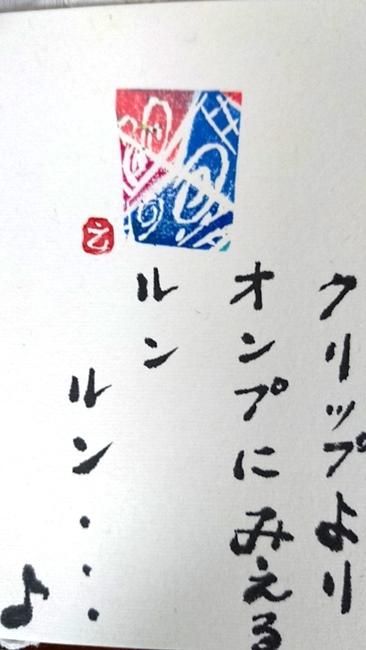 クリップより
オンプにみえる
ルン
ルン・・・
♪
え